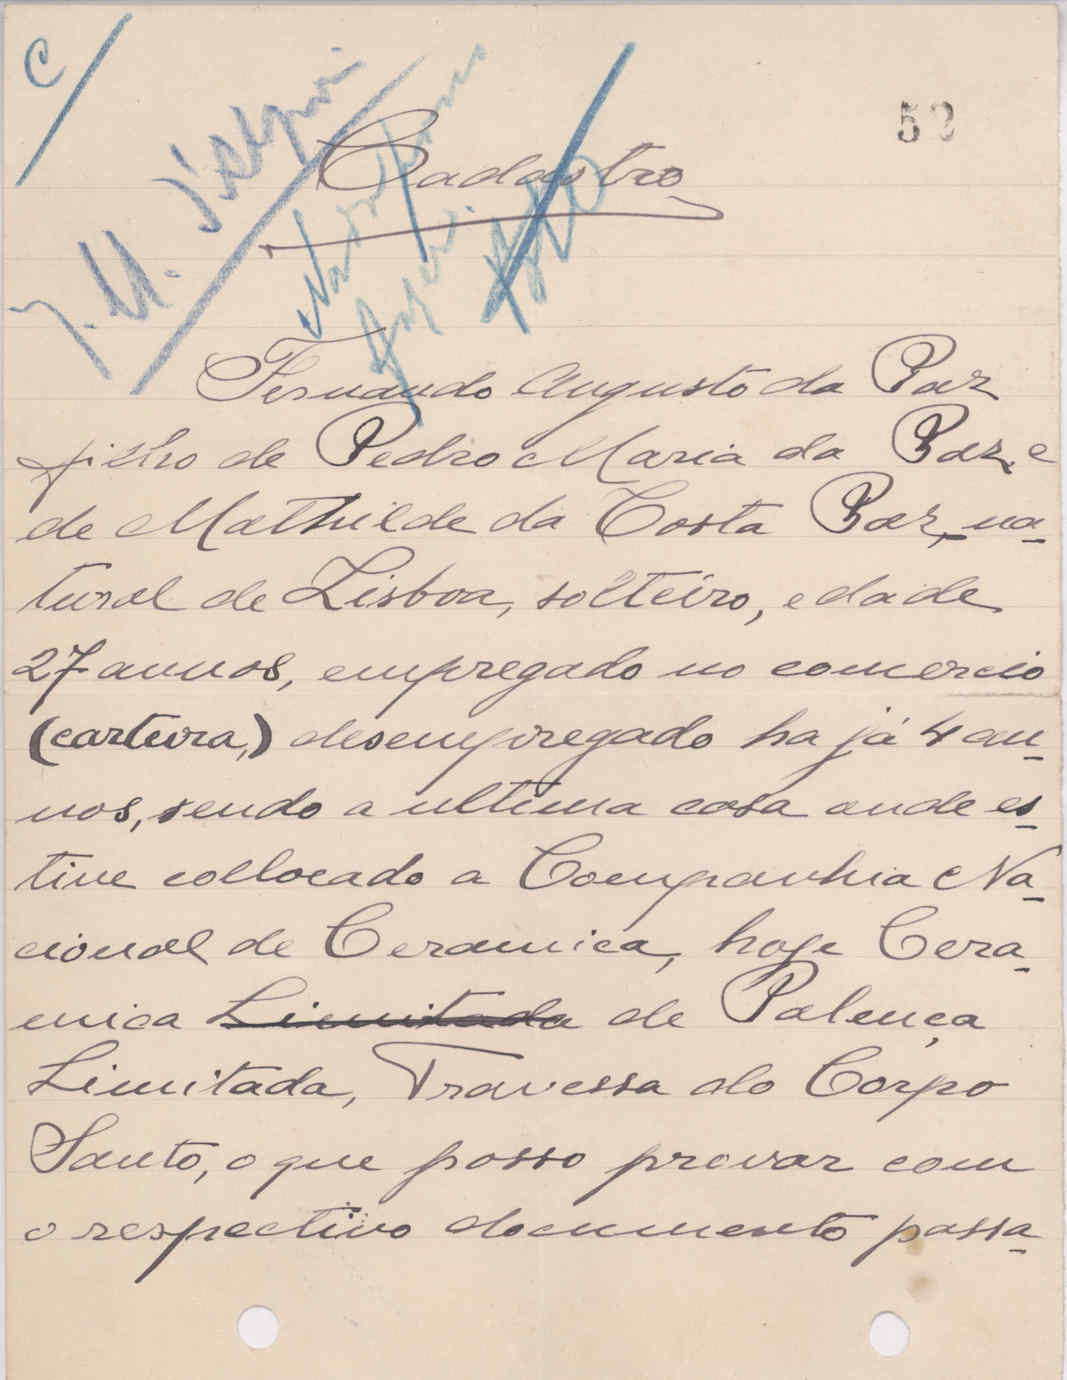 C
52
Cadastro
Fernando Augusto da Paz
filho de Pedro Maria da Paz, e
de Mathilde da Costa Paz, na-
tural de Lisboa, solteiro, edade
27 annos, empregado no comercio
(carteira,) desempregado ha já 4 an-
nos, sendo a ultima casa onde es-
tive collocado a Companhia Na-
cional de Ceramica, hoje Cera-
mica Limitada de Palença
Limitada, Travessa do Corpo
Santo, o que posso provar com
o respectivo documento passa-